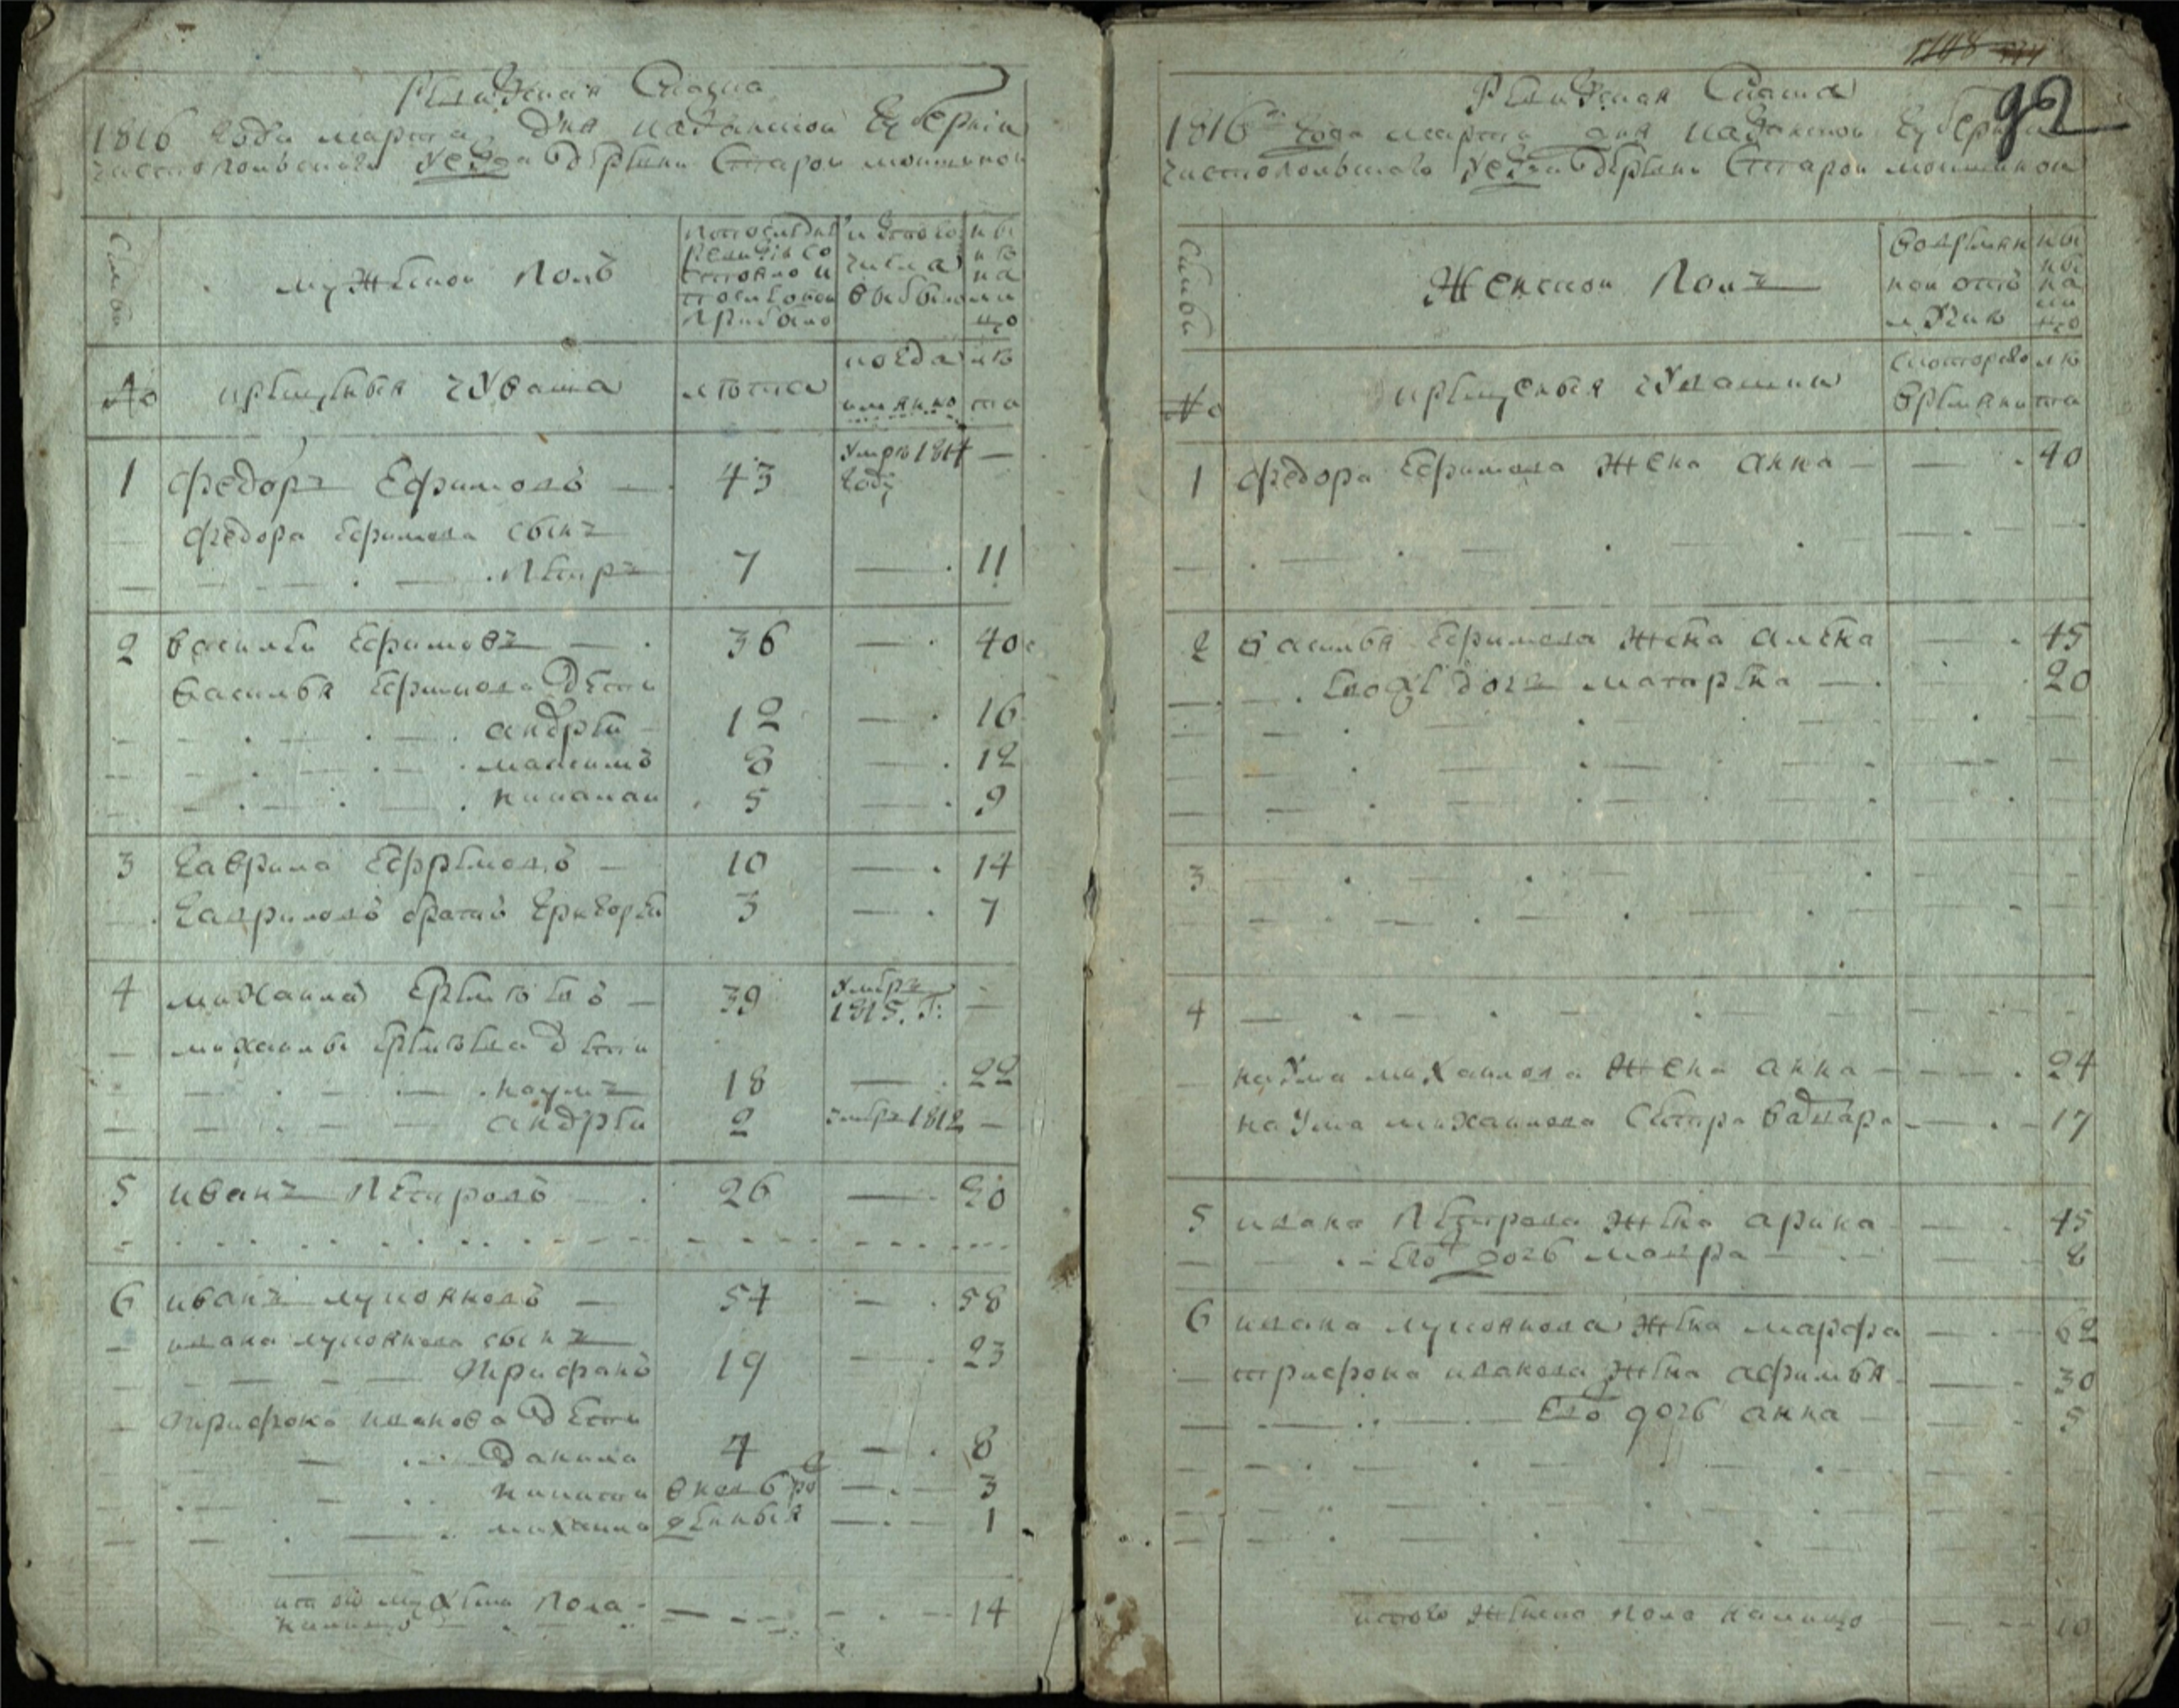 Ревижская Сказка
1816 года марта дня казанской губернии
чистопольскаго уезда деревни Старой мокшиной
Семьи
мужеской полъ
по последней ревизiи состояло и после оной прибыло
изтого числа выбыло
ныне на лицо
№
крещеныя чуваша
лета
когда имянно
лета
1 федоръ Ефимовъ — 43 умре 1814 году —
федора Ефимова сынъ
петръ 7 — 11
2 василей Ефимовъ — 36 — 40
василья Ефимова дети
андрей 12 — 16
максимъ 8 — 12
николай 5 — 9
3 гаврила Ефремовъ — 10 — 14
гавриловъ братъ григорей 3 — 7
4 михаила Еремеевъ — 39 умеръ 1815. г: —
михаилы Еремеева дети
наумъ 18 — 22
андрей 2 умеръ 1812 —
5 иванъ петровъ 26 — 30
6 иванъ лукояновъ — 54 — 58
ивана лукоянова сынъ
трифанъ 19 — 23
трифона иванова дети
данила 4 — 8
никита вновь ро — 3
михаила жденныя — 1
итого мужеска пола
налицо 14
92
Ревижская Сказка
1816го года марта дня казанской губернии
чистопольскаго уезда деревни Старой мокшиной
Семьи
Женской полъ
во временной отлучке
ныне на лицо
№
крещеныя чувашки
с котораго времяни
лета
1 федора Ефимова жена анна — 40
2 василья Ефимова жена алена — 45
Его же дочь матрена — 20
3
4
наума михаилова жена анна — 24
наума михаилова сестра вадвара — 17
5 ивана петрова жена арина — 45
Его дочь мавра — 8
6 ивана лукоянова жена марфа — 62
трифона иванова жена афимья — 30
Его дочь анна — 5
итого женска пола налицо 10